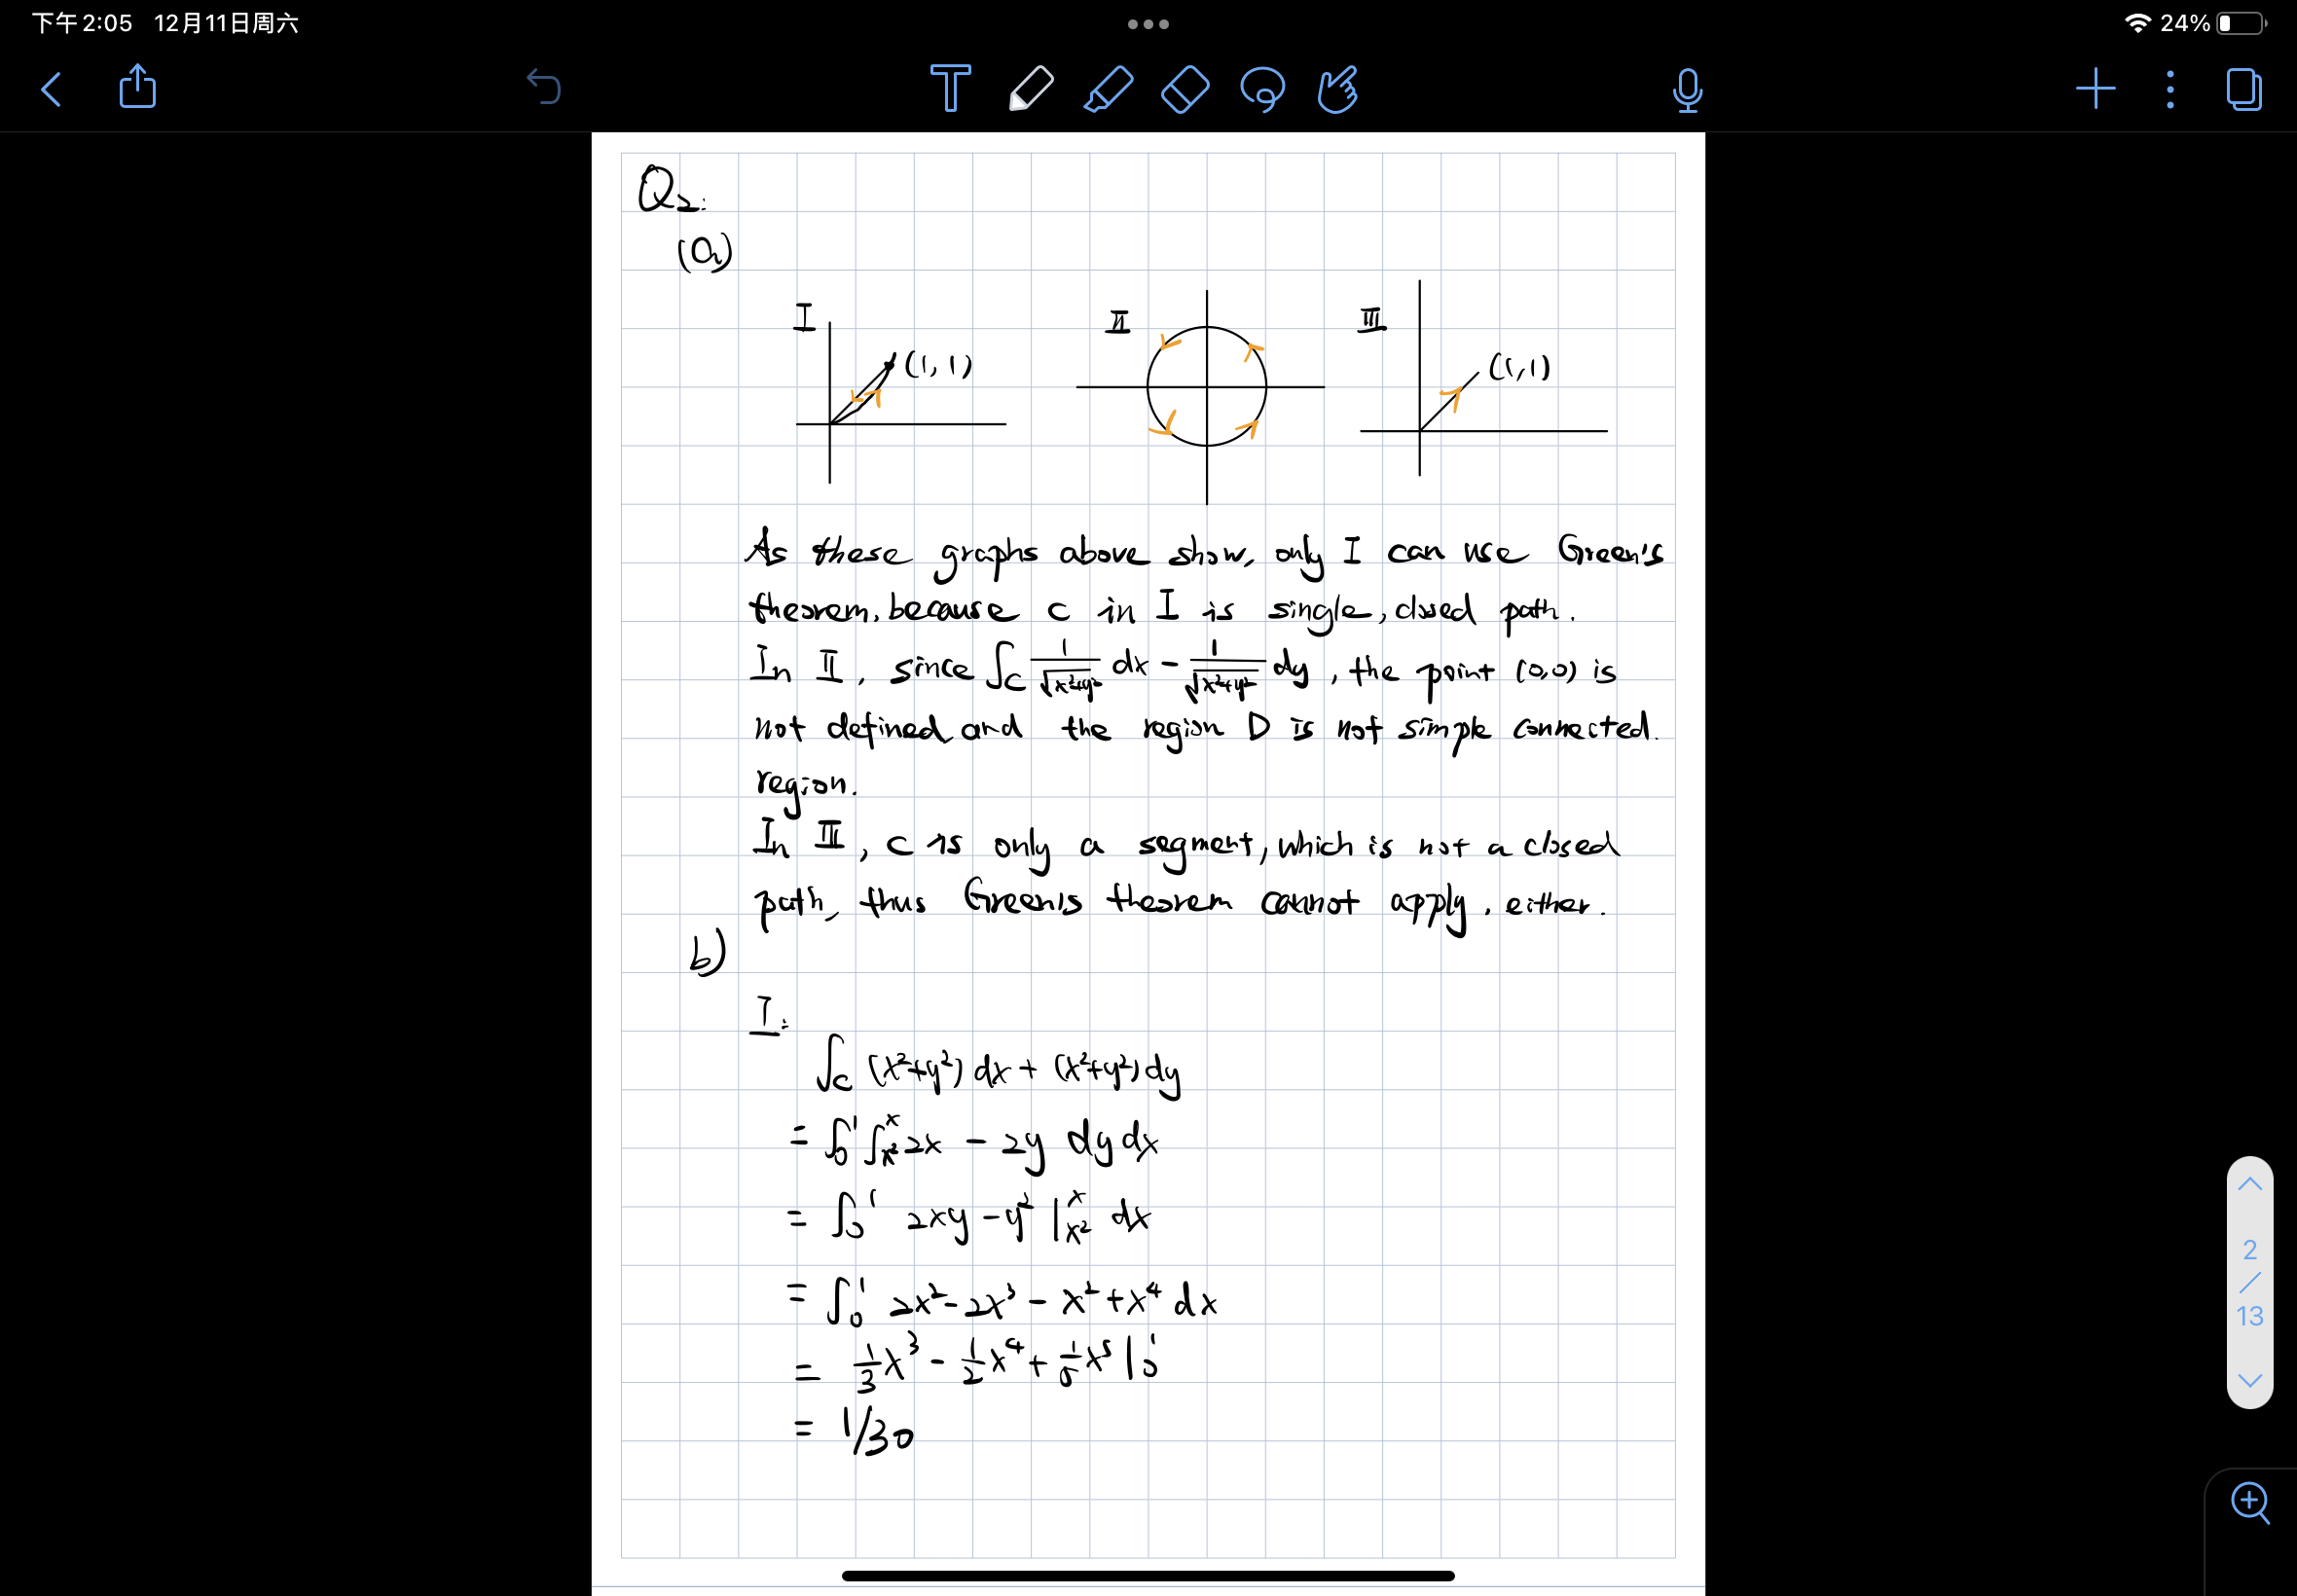 下午2:05 12月11日周六
24%
T
Q2:
(a)
I II III
(1,1) (1,1)
As these graphs above show, only I can use Green's
theorem, because c in I is single, closed path.
In II, since ∫_C 1/√(x²+y²) dx - 1/√(x²+y²) dy, the point (0,0) is
not defined, and the region D is not simple connected.
region.
In III, c is only a segment, which is not a closed
path, thus Green's theorem cannot apply, either.
b)
I:
∫_C (x²+y²) dx + (x²+y²) dy
= ∫_0^1 ∫_{x²}^x 2x - 2y dy dx
= ∫_0^1 2xy - y² |_{x²}^x dx
= ∫_0^1 2x² - 2x³ - x² + x⁴ dx
= 1/3 x³ - 1/2 x⁴ + 1/5 x⁵ |_0^1
= 1/30
2
/
13